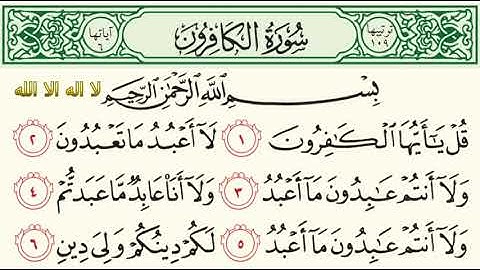 ترتيبها ١٠٩
سُورَةُ الكَافِرُونَ
آياتها ٦
بِسْمِ اللَّهِ الرَّحْمَٰنِ الرَّحِيمِ
لا اله الا الله
قُلْ يَٰٓأَيُّهَا ٱلْكَٰفِرُونَ ١ لَآ أَعْبُدُ مَا تَعْبُدُونَ ٢
وَلَآ أَنتُمْ عَٰبِدُونَ مَآ أَعْبُدُ ٣ وَلَآ أَنَا۠ عَابِدٌ مَّا عَبَدتُّمْ ٤
وَلَآ أَنتُمْ عَٰبِدُونَ مَآ أَعْبُدُ ٥ لَكُمْ دِينُكُمْ وَلِىَ دِينِ ٦